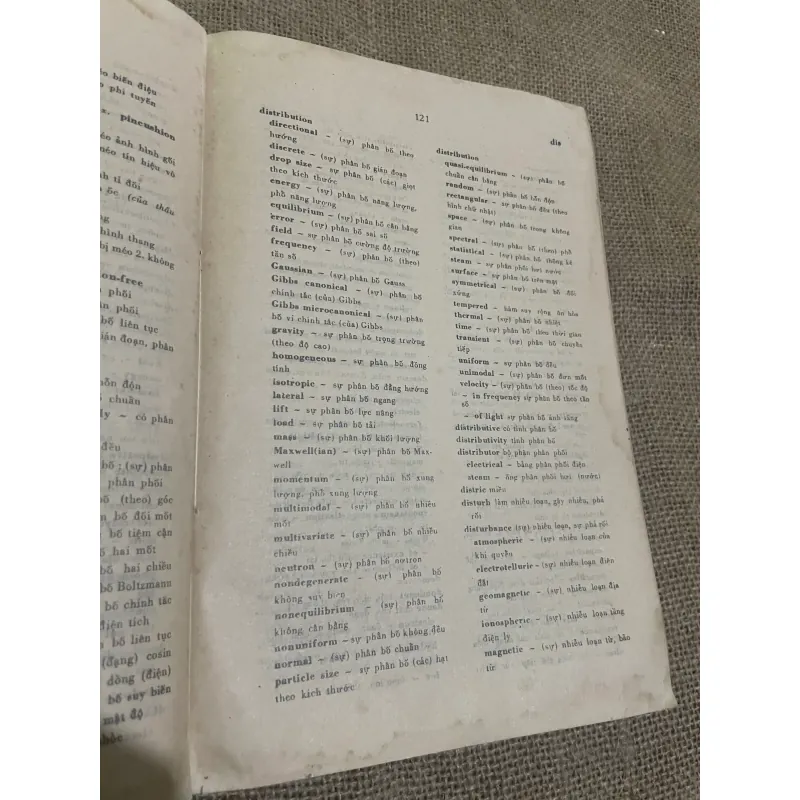 éo biến điệu
o phi tuyến
pincushion
éo ảnh hình gối
méo tín hiệu vô
h tỉ đối
ốc (của thấu
hình thang
bị méo 2, không
on-free
phối
ân phối
bố liên tục
ián đoạn, phân
hỗn độn
ố chuẩn
ly – có phân
đều
bố ; (sự) phân
phân phối
bố (theo) góc
ân bố đối mốt
bố tiệm cận
bố hai mốt
bố hai chiều
bố Boltzmann
bố chính tắc
điện tích
bố liên tục
(dạng) cosin
dòng (điện)
bố suy biến
mật độ
121
distribution
directional – (sự) phân bố theo
hướng
discrete – (sự) phân bố gián đoạn
drop size – sự phân bố (các) giọt
theo kích thước
energy – (sự) phân bố năng lượng,
phổ năng lượng
equilibrium – (sự) phân bố cân bằng
error – (sự) phân bố sai số
field – sự phân bố cường độ trường
frequency – (sự) phân bố (theo)
tần số
Gaussian – (sự) phân bố Gauss
Gibbs canonical – (sự) phân bố
chính tắc (của) Gibbs
Gibbs microcanonical – (sự) phân
bố vi chính tắc (của) Gibbs
gravity – sự phân bố trọng trường
(theo độ cao)
homogeneous – sự phân bố đồng
tính
isotropic – sự phân bố đẳng hướng
lateral – sự phân bố ngang
lift – sự phân bố lực nâng
load – sự phân bố tải
mass – (sự) phân bố khối lượng
Maxwell(ian) – (sự) phân bố Max-
well
momentum – (sự) phân bố xung
lượng, phổ xung lượng
multimodal – (sự) phân bố nhiều
mốt
multivariate – (sự) phân bố nhiều
chiều
neutron – (sự) phân bố nơtron
nondegenerate – (sự) phân bố
không suy biến
nonequilibrium – (sự) phân bố
không cân bằng
nonuniform – sự phân bố không đều
normal – (sự) phân bố chuẩn
particle size – sự phân bố (các) hạt
theo kích thước
dis
distribution
quasi-equilibrium – (sự) phân bố
chuẩn cân bằng
random – (sự) phân bố hỗn độn
rectangular – sự phân bố đều (theo
hình chữ nhật)
space – sự phân bố trong không
gian
spectral – (sự) phân bố (theo) phổ
statistical – (sự) phân bố thống kê
steam – sự phân phối hơi nước
surface – sự phân bố trên mặt
symmetrical – (sự) phân bố đối
xứng
tempered – hàm suy rộng ôn hòa
thermal – (sự) phân bố nhiệt
time – (sự) phân bố theo thời gian
transient – (sự) phân bố chuyển
tiếp
uniform – sự phân bố đều
unimodal – (sự) phân bố đơn mốt
velocity – (sự) phân bố (theo) tốc độ
– in frequency sự phân bố theo tần
số
– of light sự phân bố ánh sáng
distributive có tính phân bố
distributivity tính phân bố
distributor bộ phận phân phối
electrical – bảng phân phối điện
steam – ống phân phối hơi (nước)
distric miền
disturb làm nhiễu loạn, gây nhiễu, phá
rối
disturbance (sự) nhiễu loạn, sự phá rối
atmospheric – (sự) nhiễu loạn của
khí quyển
electrotelluric – (sự) nhiễu loạn điện
đất
geomagnetic – (sự) nhiễu loạn địa
từ
ionospheric – (sự) nhiễu loạn tầng
điện ly
magnetic – (sự) nhiễu loạn từ, bão
từ